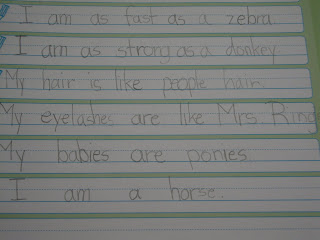 I am as fast as a zebra.
I am as strong as a donkey.
My hair is like people hair.
My eyelashes are like Mrs. Ring
My babies are ponies.
I am a horse.